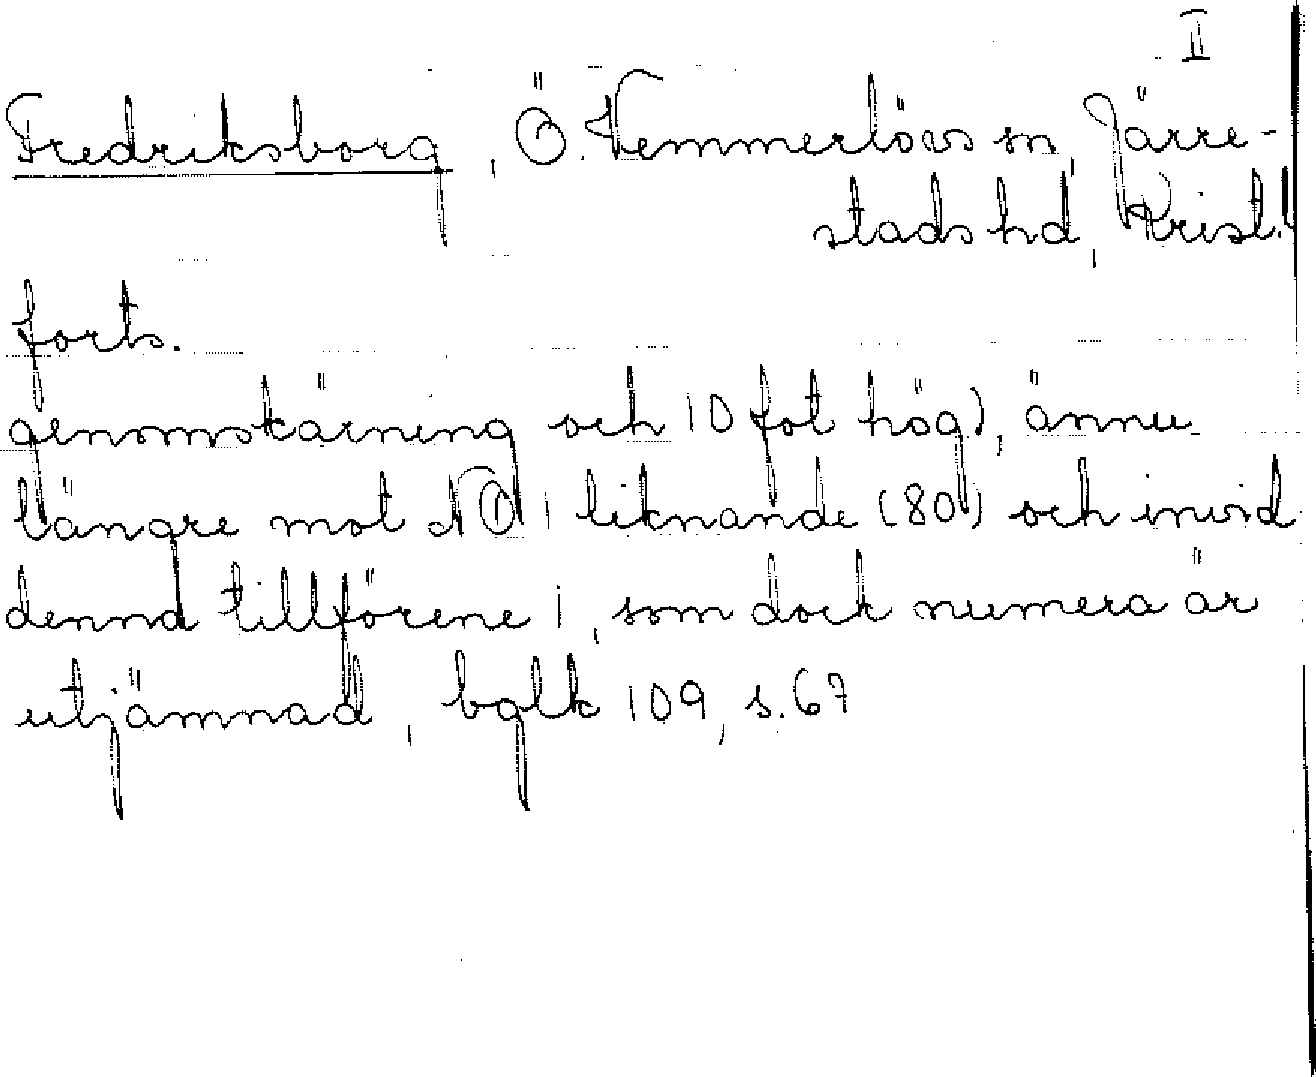 II
Fredriksborg, Ö. Vemmerlövs sn, Järre-
stads hd, Krist. l
forts.
genomskärning och 10 fot hög), ännu
längre mot NO 1 liknande (80) och invid
denna tillförene 1, som dock numera är
utjämnad, bglk 109, s. 67